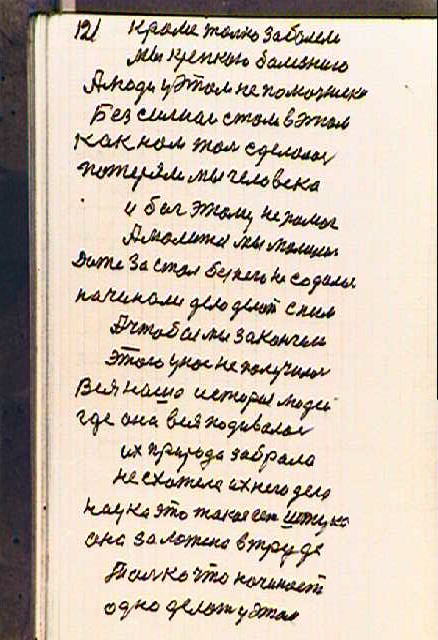 121 Кроме толко заболели
мы крепкою болезнию
А люди у этом не помочники
Без силиом столи в этом
как нам там сделолос
потеряли мы человека
и бог этому не помог
А молится мы молилис
Даже за стол без него не содилис
начинали дело делот с ним
А чтобы мы закончели
этого у нас не получилос
Вся нашо история людей
где она вся подивалос
их природа забрала
не схотела их него дело
наука это такоя ген штука
она заложена в труде
Толко что начинает
одно делот у этом